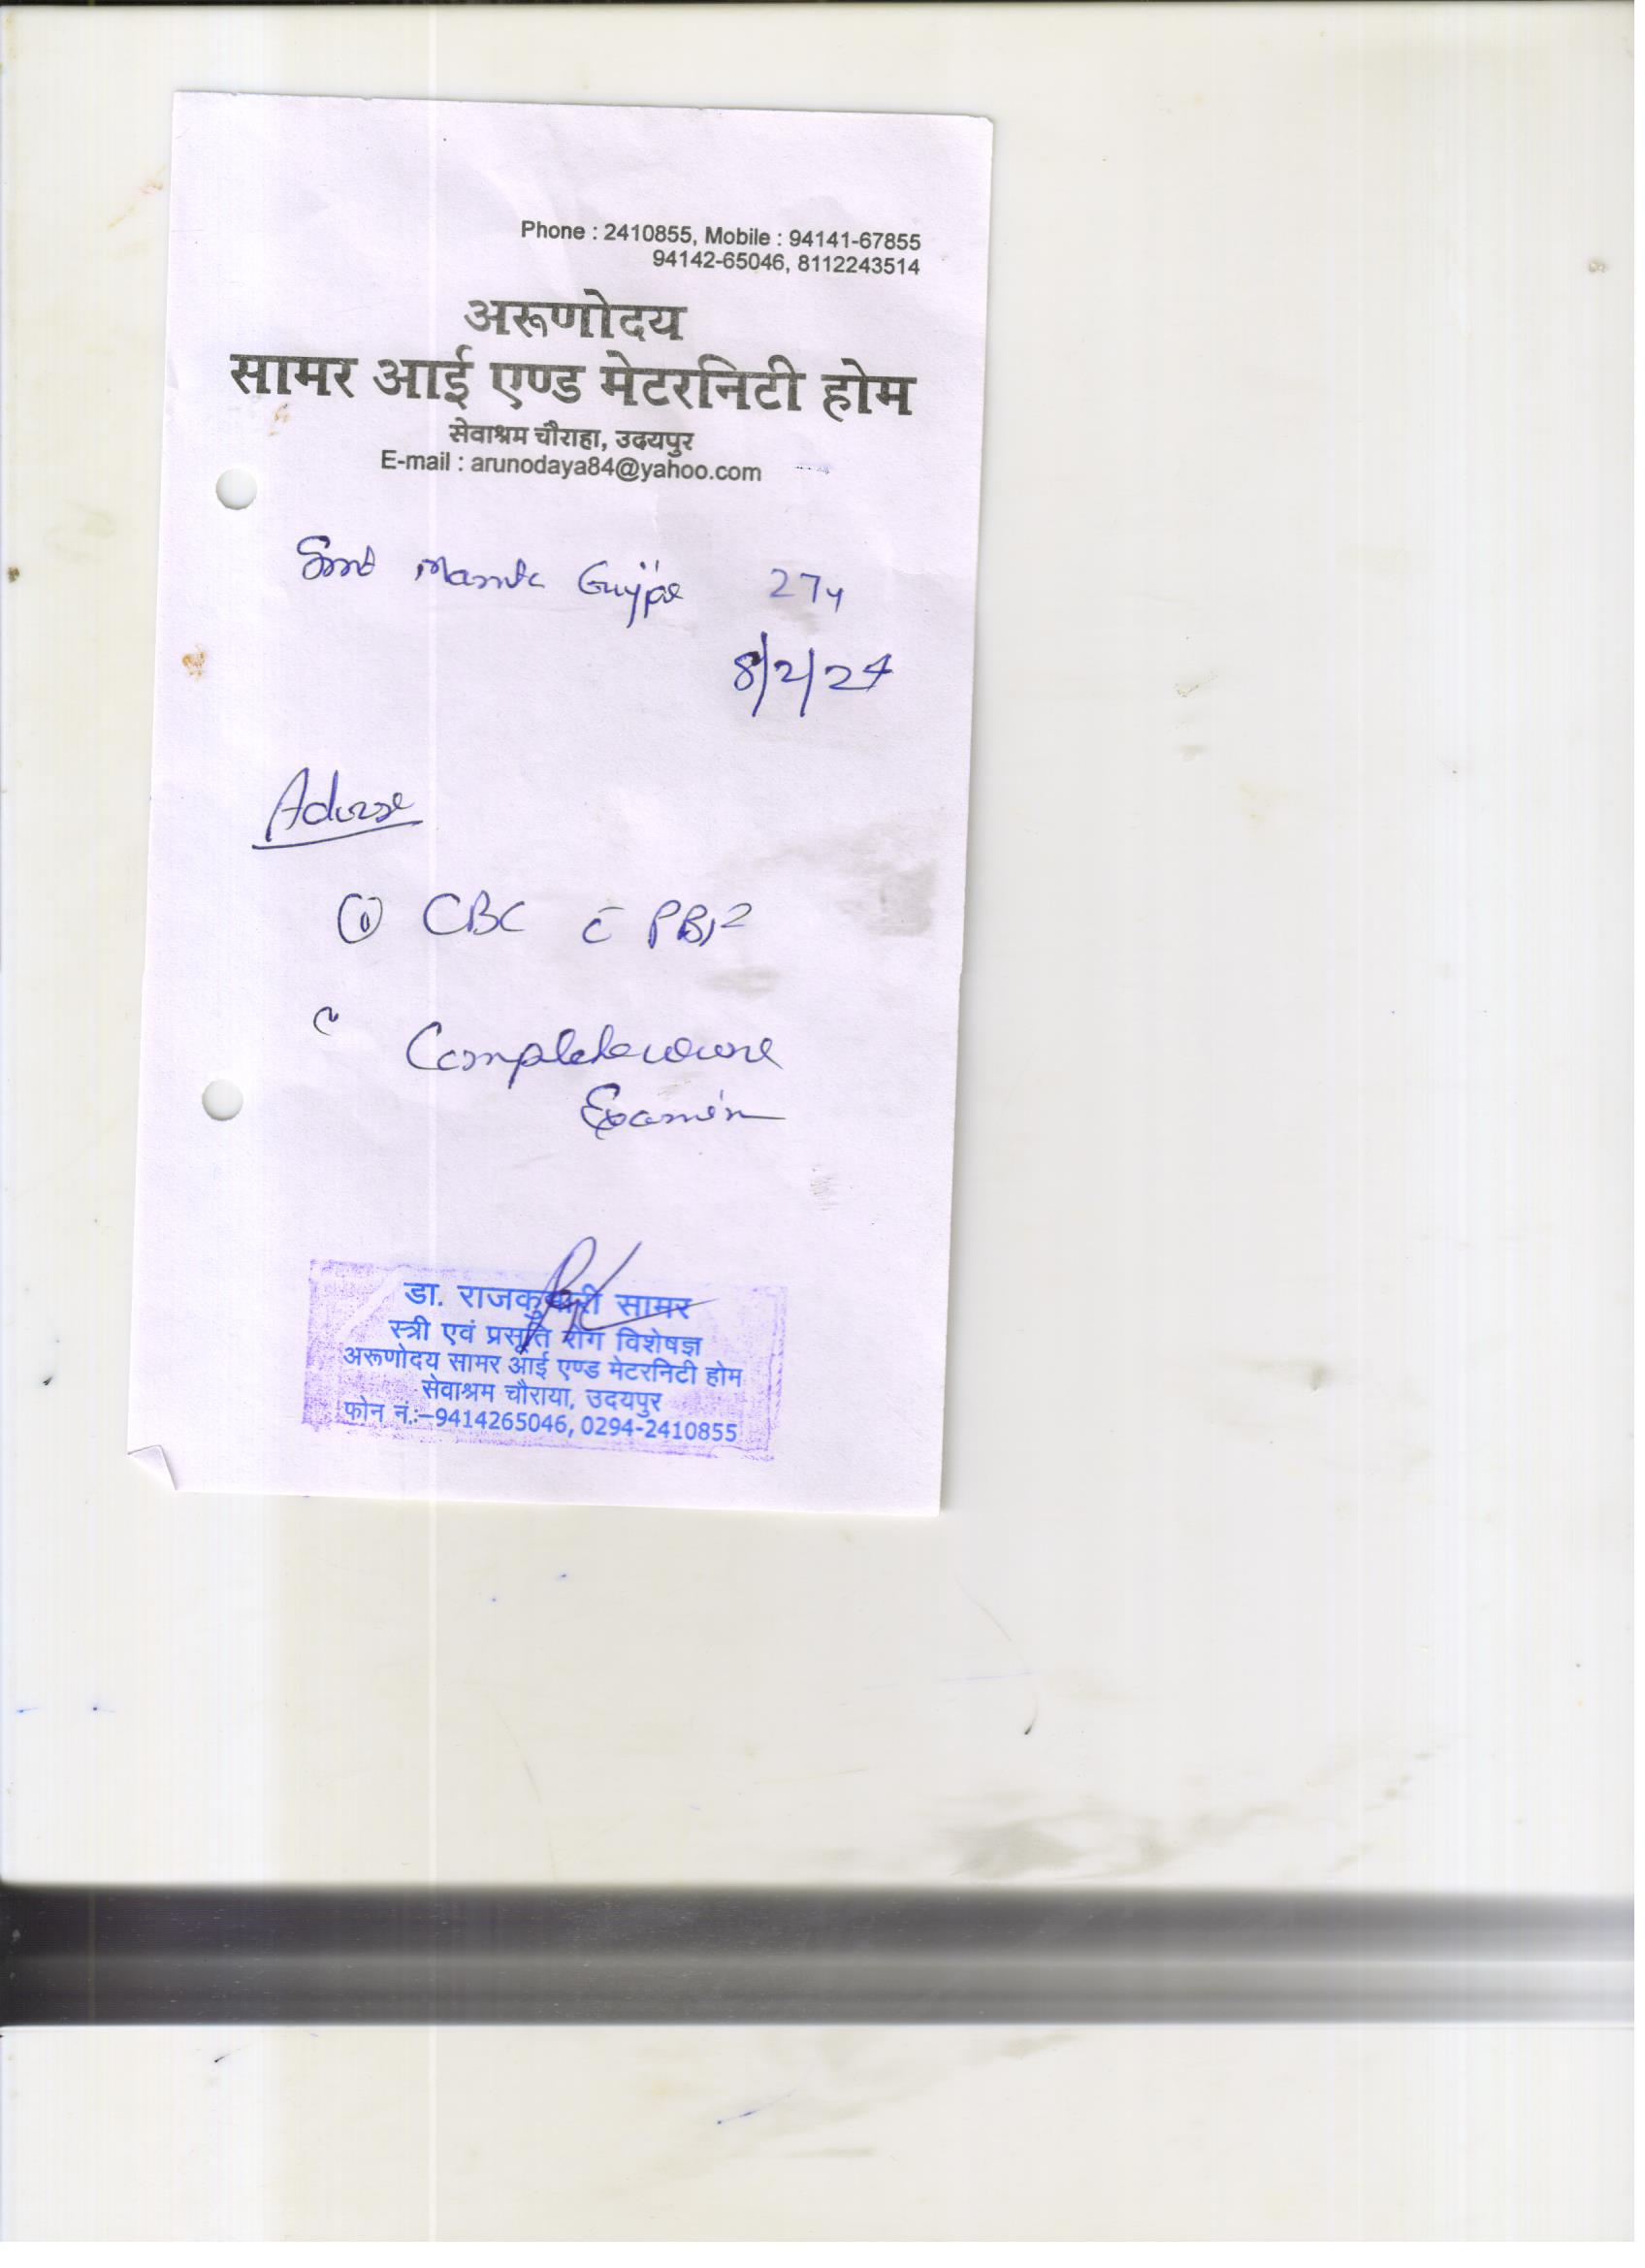 Phone : 2410855, Mobile : 94141-67855
94142-65046, 8112243514
अरूणोदय
सामर आई एण्ड मेटरनिटी होम
सेवाश्रम चौराहा, उदयपुर
E-mail : arunodaya84@yahoo.com
Smt Mamta Gujjar 27y
8/2/24
Advise
① CBC c̄
Complete urine
Examin
डा. राजकुमारी सामर
स्त्री एवं प्रसूति रोग विशेषज्ञ
अरूणोदय सामर आई एण्ड मेटरनिटी होम
सेवाश्रम चौराया, उदयपुर
फोन नं.:–9414265046, 0294-2410855